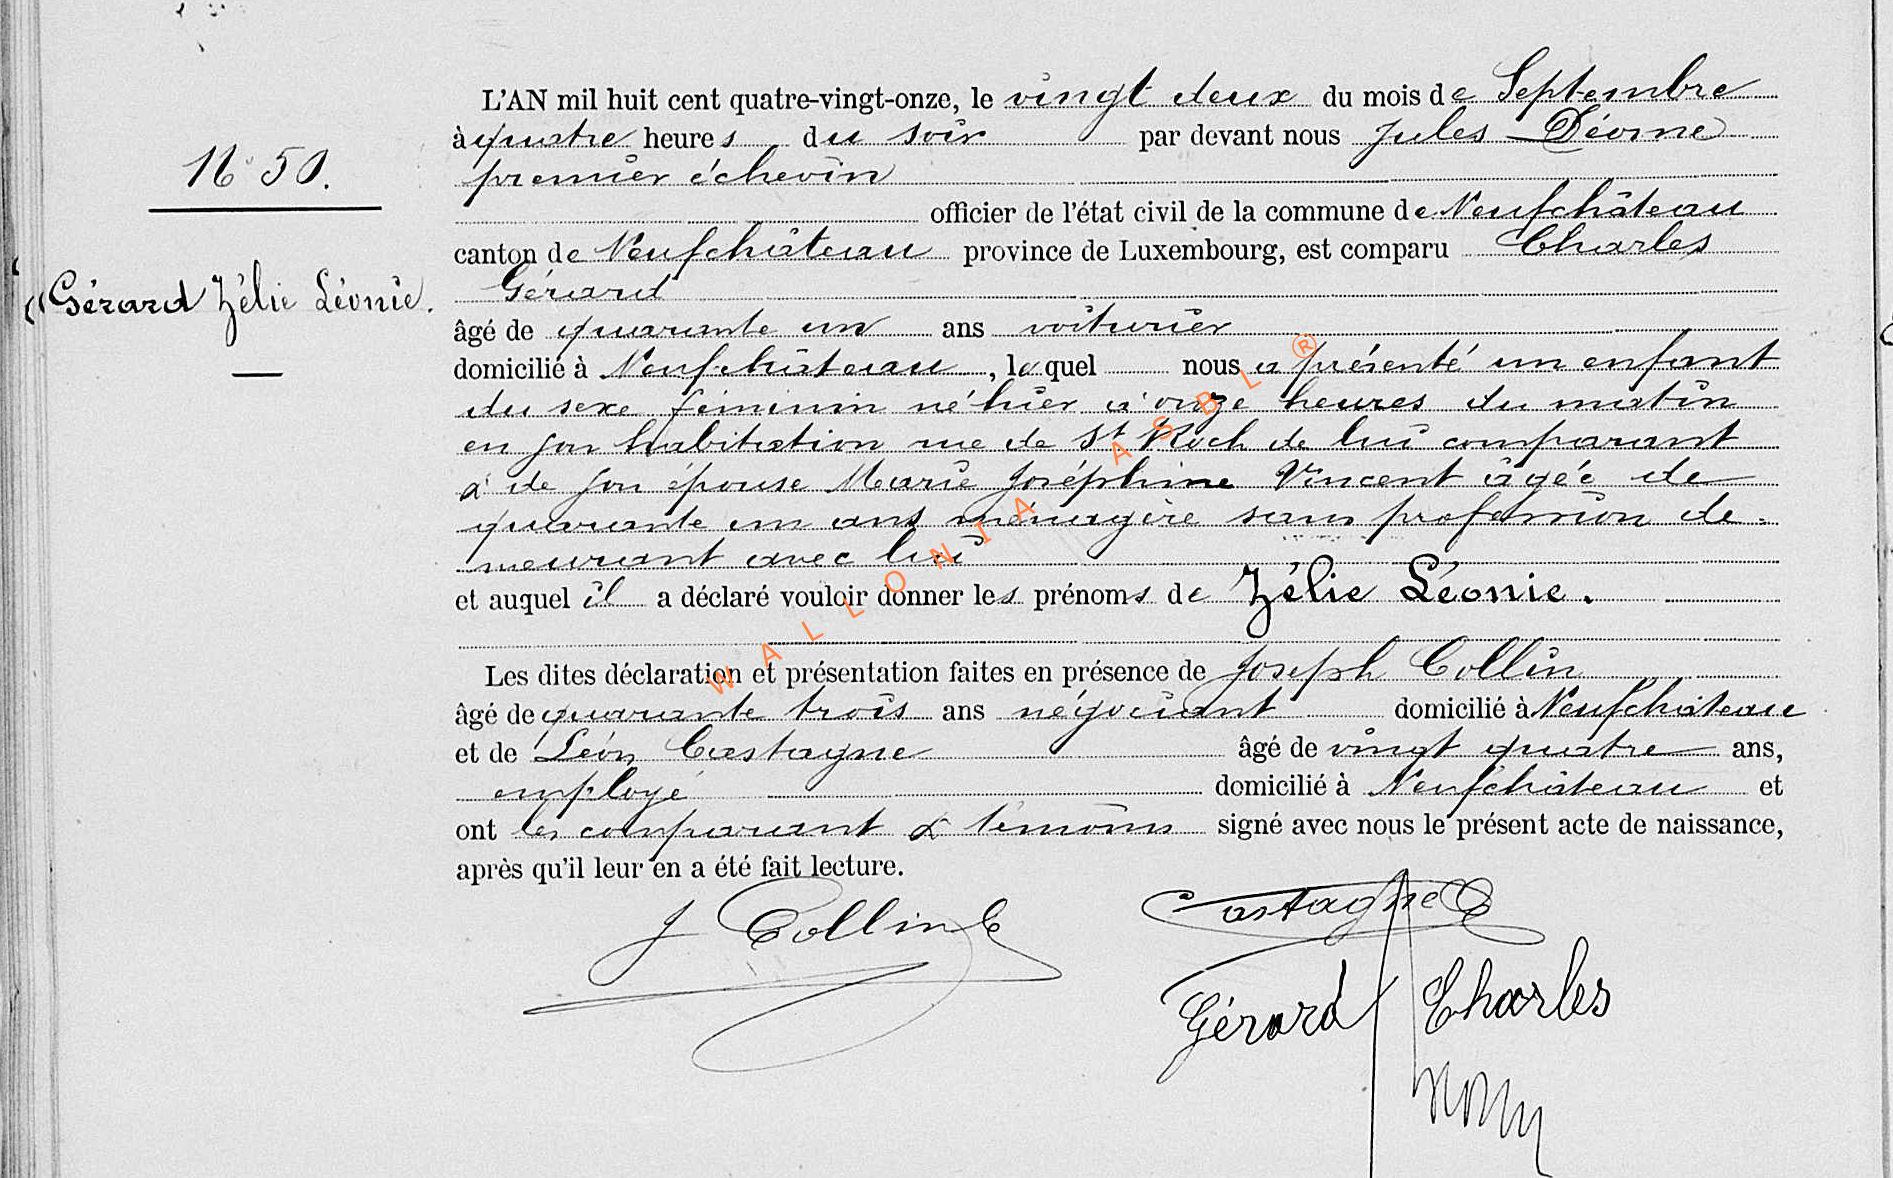 L'AN mil huit cent quatre-vingt-onze, le vingt deux du mois de Septembre
à quatre heures du soir par devant nous Jules Déome
premier échevin
officier de l'état civil de la commune de Neufchâteau
canton de Neufchâteau province de Luxembourg, est comparu Charles
Gérard
âgé de quarante un ans voiturier
domicilié à Neufchâteau, lequel nous a présenté un enfant
du sexe féminin né hier à onze heures du matin
en son habitation rue de St Roch de lui comparant
& de son épouse Marie Joséphine Vincent âgée de
quarante un ans ménagère sans profession de-
meurant avec lui
et auquel il a déclaré vouloir donner les prénoms de Zélie Léonie.
Les dites déclaration et présentation faites en présence de Joseph Collin
âgé de quarante trois ans négociant domicilié à Neufchâteau
et de Léon Castagne âgé de vingt quatre ans,
employé domicilié à Neufchâteau et
ont les comparant & témoins signé avec nous le présent acte de naissance,
après qu'il leur en a été fait lecture.
N° 50.
Gérard Zélie Léonie.
J Collin
Castagne
Gérard Charles
WALLONIA ASBL ®